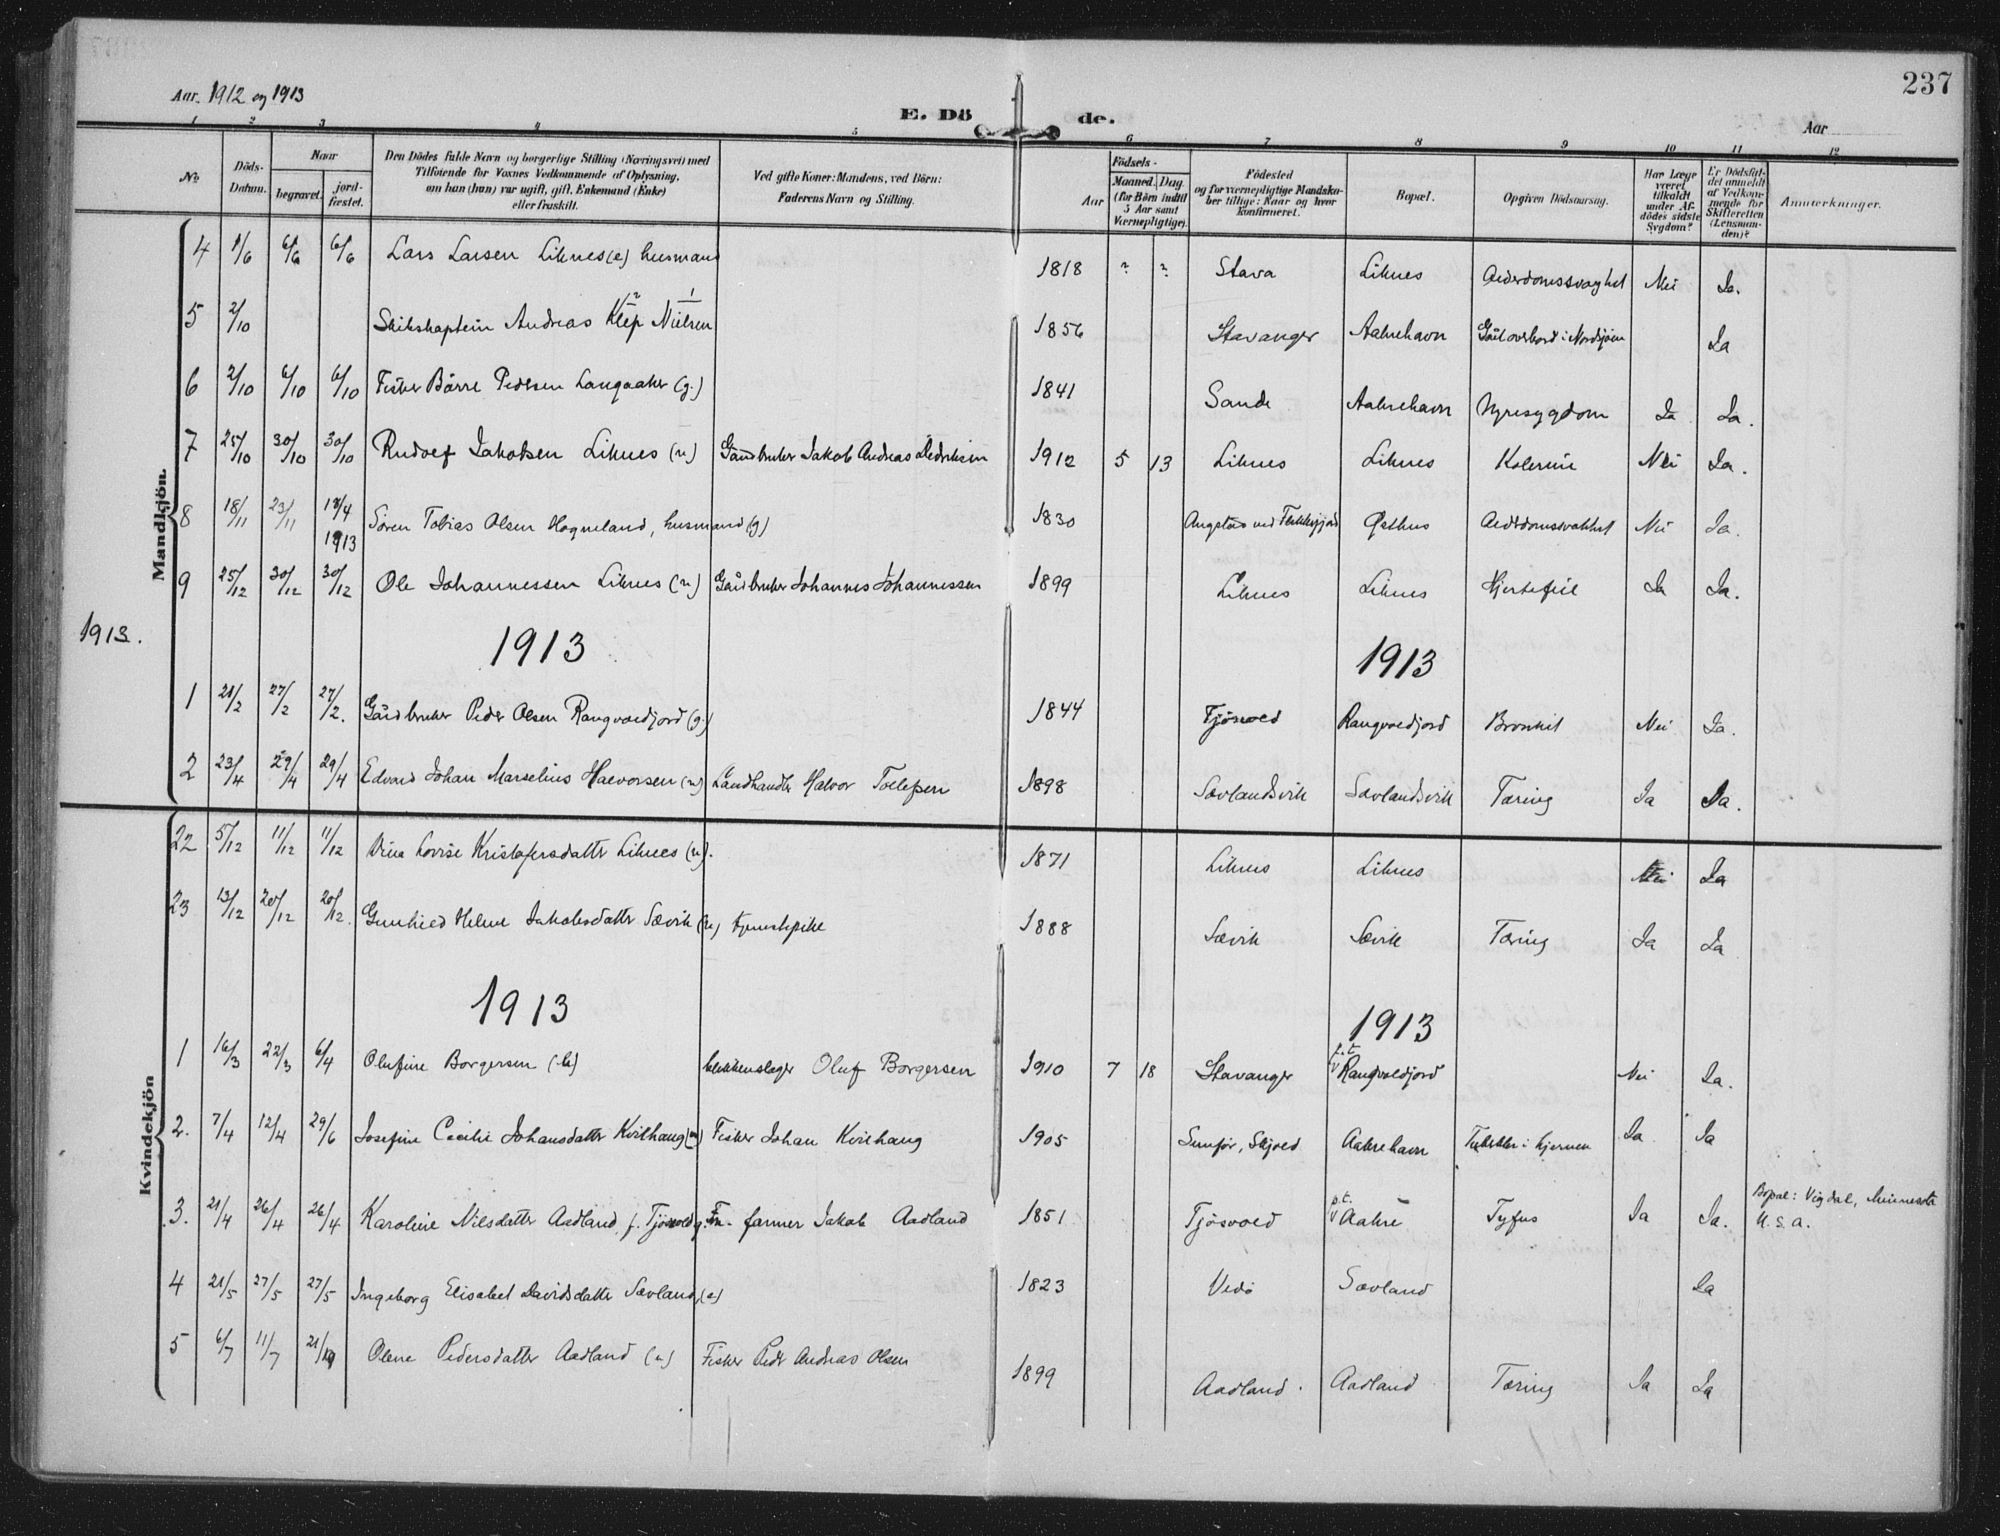 237
Aar. 1912 og 1913
E. Döde.
Aar
1 2 3 4 5 6 7 8 9 10 11 12
No
Döds-Datum.
Naar
begravet. jord-fæstet.
Den Dödes fulde Navn og borgerlige Stilling (Næringsvei) med
Tilföiende for Voxnes Vedkommende af Oplysning,
om han (hun) var ugift, gift, Enkemand (Enke)
eller fraskilt.
Ved gifte Koner: Mandens, ved Börn:
Faderens Navn og Stilling.
Födsels-
Aar Maaned. Dag
(for Börn indtil
5 Aar samt
Værnepligtige).
Födested
og for værnepligtige Mandska-
ber tillige: Naar og hvor
konfirmeret.
Bopæl.
Opgiven Dödsaarsag.
Har Læge
været
tilkaldt
under Af-
dödes sidste
Sygdom?
Er Dödsfal-
det anmeldt
af Vedkom-
mende for
Skifteretten
(Lensman-
den)?
Anmerkninger.
Mandkjön.
4 1/6 6/6 6/6 Lars Larsen Liknes (e) husmand 1818 ? ? Stava Liknes Alderdomssvaghet Nei Ja.
5 2/10 Skibskaptein Andreas Klep Nielsen 1856 Stavanger Aakrehavn Gåt overbord i Nordsjøen Ja
6 2/10 6/10 6/10 Fisker Börre Pedersen Langaaker (g.) 1841 Sande Aakrehavn Nyresygdom Ja Ja.
7 25/10 30/10 30/10 Rudolf Jakobsen Liknes (u) Gårdbruker Jakob Andreas Didriksen 1912 5 13 Liknes Liknes Kolerine Nei Ja.
8 18/11 23/11 18/4 1913 Sören Tobias Olsen Hogneland, husmand (g) 1830 ved Østhus Nei Ja.
9 25/12 30/12 30/12 Ole Johannessen Liknes (u) Gårdbruker Johannes Johannessen 1899 Liknes Liknes Hjertefeil Ja Ja.
1913.
1913 1913
1 21/2 27/2 27/2. Gårdbruker Peder Olsen Rangvaldjord (g.) 1844 Tjösvold Rangvaldjord Bronkit Nei Ja.
2 23/4 29/4 29/4 Edvard Johan Marselius Halvorsen (u) Landhandler Halvor Tollefsen 1898 Sævlandsvik Sævlandsvik Tæring Ja Ja.
Kvindekjön
22 5/12 11/12 11/12 Lovise Kristofersdatter Liknes (u). 1871 Liknes Liknes Nei Ja
23 13/12 20/12 20/12. Gunhild Helene Jakobsdatter Sævik (u) tjenestepike 1888 Sævik Sævik Tæring Ja Ja
1913 1913
1 16/3 22/3 6/4 Olufine Borgersen (b) blikkenslager Oluf Borgersen 1910 7 18 Stavanger p.t. Rangvaldjord Nei Ja.
2. 7/4 12/4 29/6 Josefine Cecilie Johansdatter Kvilhaug (u) Fisker Johan Kvilhaug 1905 Skjold Aakrehavn Tuberkler i hjernen Ja Ja
3. 21/4 26/4 26/4 Karoline Nilsdatter Aadland f. Tjösvold g. farmer Jakob Aadland 1851 Tjösvold p.t. Aakre Tyfus Ja Ja. Bopæl: Vigdal, Minnesota
U.S.A.
4 21/5 27/5 27/5 Ingeborg Elisabet Davidsdatter Sævland (e) 1823 Vedö Sævland Ja
5 6/7 11/7 Olene Pedersdatter Aadland (u) Fisker Peder Andreas Olsen 1899 Aadland. Aadland Tæring Ja Ja